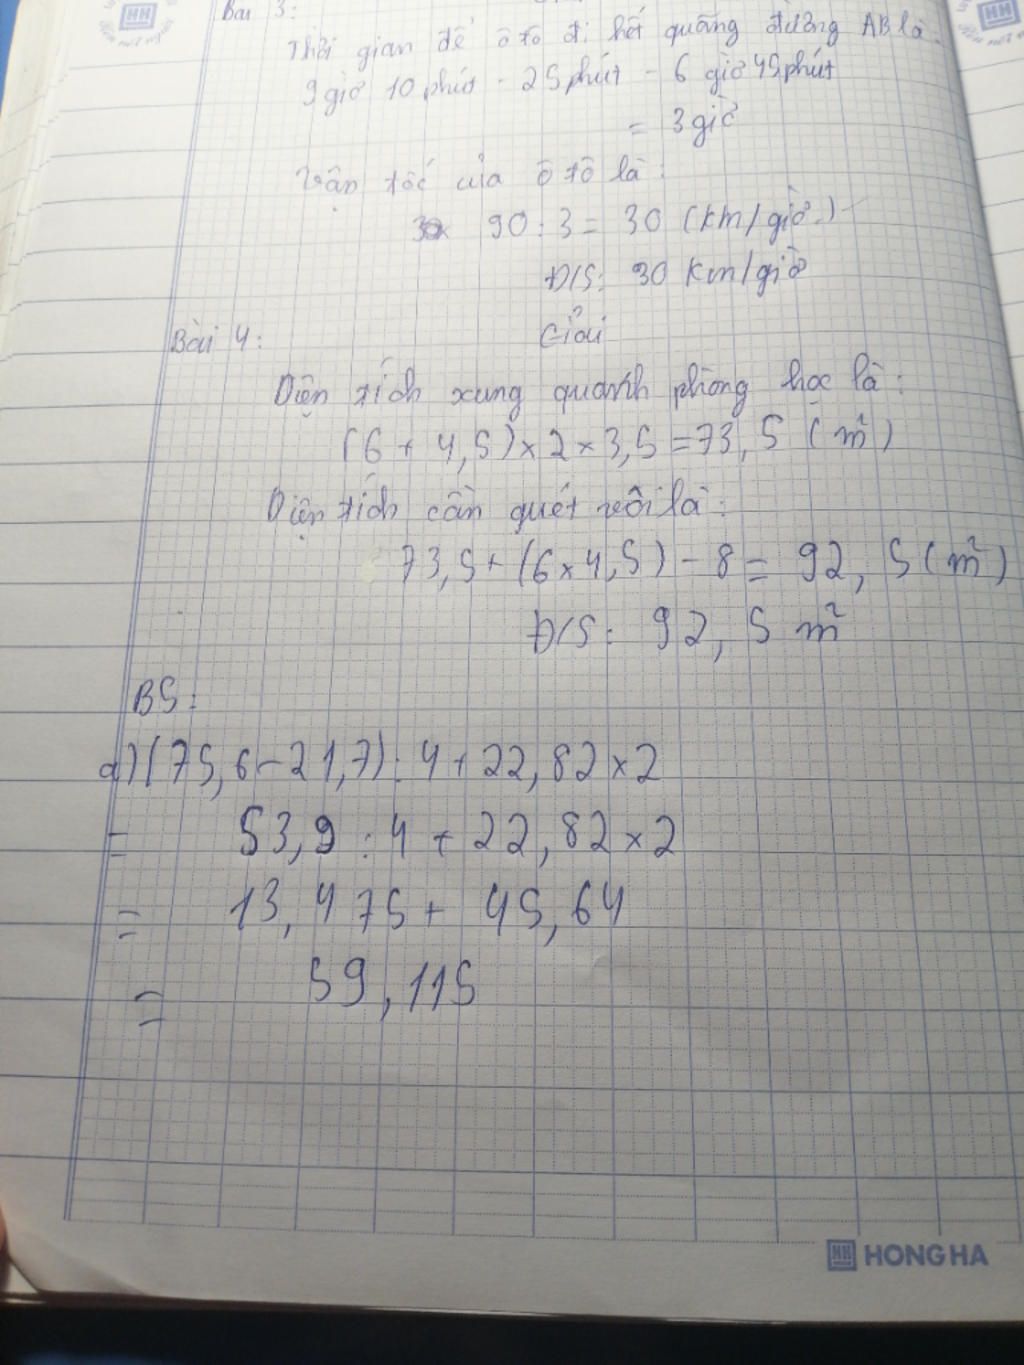 Bài 3:
Thời gian để ô tô đi hết quãng đường AB là:
9 giờ 10 phút - 25 phút - 6 giờ 45 phút
= 3 giờ
Vận tốc của ô tô là:
90 : 3 = 30 (km/giờ)
Đ/S: 30 Km/giờ
Bài 4: Giải
Diện tích xung quanh phòng học là:
(6 + 4,5) × 2 × 3,5 = 73,5 (m²)
Diện tích cần quét vôi là:
73,5 + (6 × 4,5) - 8 = 92,5 (m²)
Đ/S: 92,5 m²
B5:
a) (75,6 - 21,7) : 4 + 22,82 × 2
= 53,9 : 4 + 22,82 × 2
= 13,475 + 45,64
= 59,115
HH HONG HA